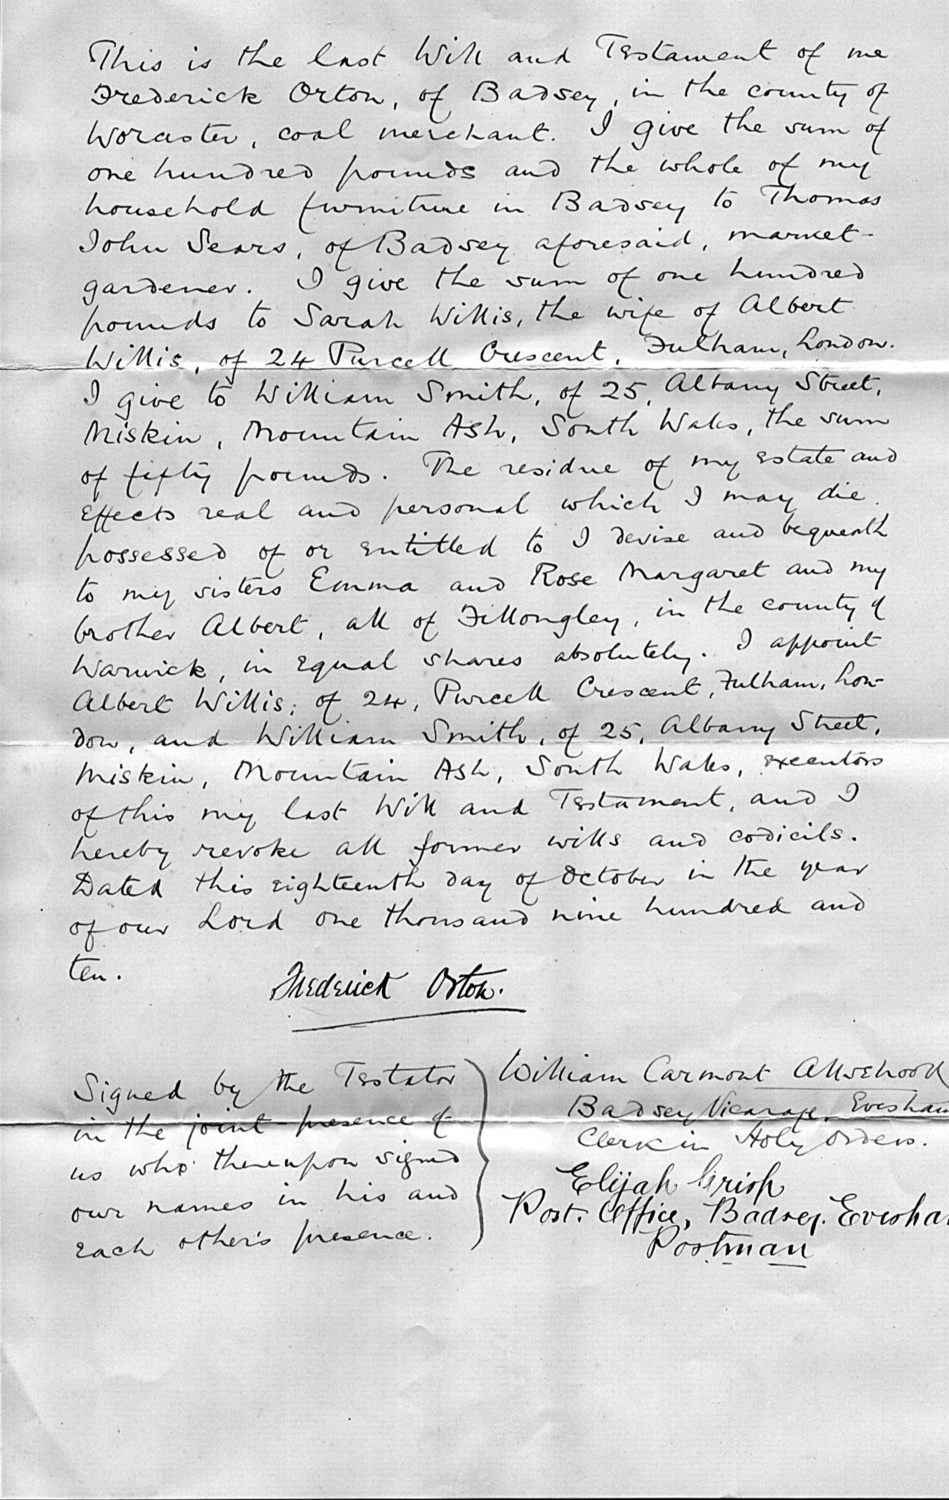 This is the last Will and Testament of me
Frederick Orton, of Badsey, in the county of
Worcester, coal merchant. I give the sum of
one hundred pounds and the whole of my
household furniture in Badsey to Thomas
John Sears, of Badsey aforesaid, market-
gardener. I give the sum of one hundred
pounds to Sarah Willis, the wife of Albert
Willis, of 24 Purcell Crescent, Fulham, London.
I give to William Smith, of 25, Albany Street,
Miskin, Mountain Ash, South Wales, the sum
of fifty pounds. The residue of my estate and
effects real and personal which I may die
possessed of or entitled to I devise and bequeath
to my sisters Emma and Rose Margaret and my
brother Albert, all of Fillongley, in the county of
Warwick, in equal shares absolutely. I appoint
Albert Willis, of 24, Purcell Crescent, Fulham, Lon-
don, and William Smith, of 25, Albany Street,
Miskin, Mountain Ash, South Wales, executors
of this my last Will and Testament, and I
hereby revoke all former wills and codicils.
Dated this eighteenth day of October in the year
of our Lord one thousand nine hundred and
ten.
Frederick Orton.
Signed by the Testator
in the joint presence of
us who thereupon signed
our names in his and
each other's presence.
William Carmont Allsebrook
Badsey Vicarage, Evesham
Clerk in Holy Orders.
Elijah Crisp
Post. Office, Badsey. Evesha
Postman